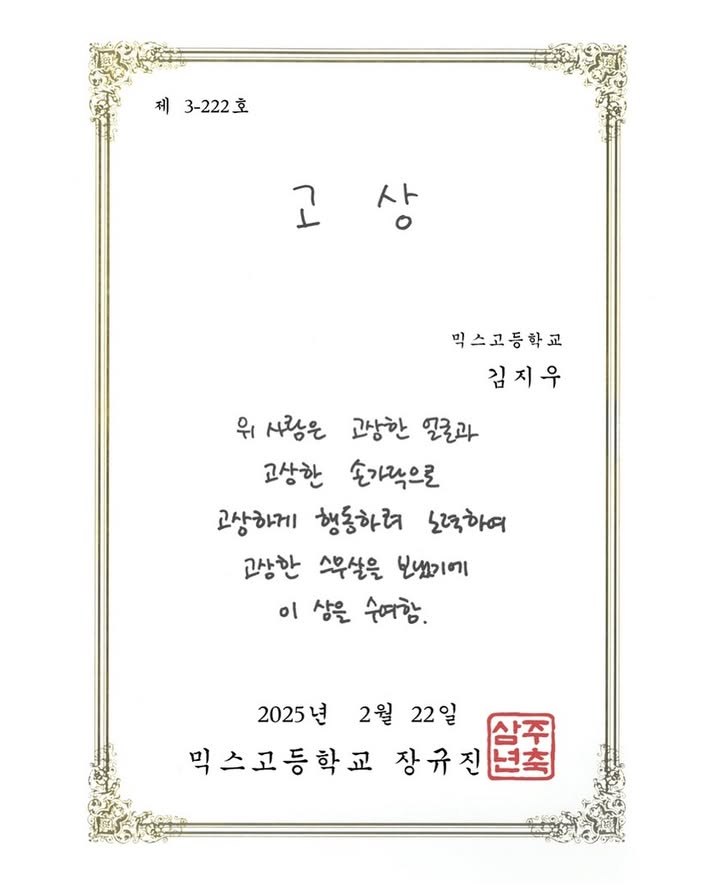 제 3-222호
고 상
믹스고등학교
김지우
위 사람은 고상한 얼굴과
고상한 손가락으로
고상하게 행동하려 노력하여
고상한 스무살을 보냈기에
이 상을 수여함.
2025년 2월 22일
믹스고등학교 장규진
삼주
년축